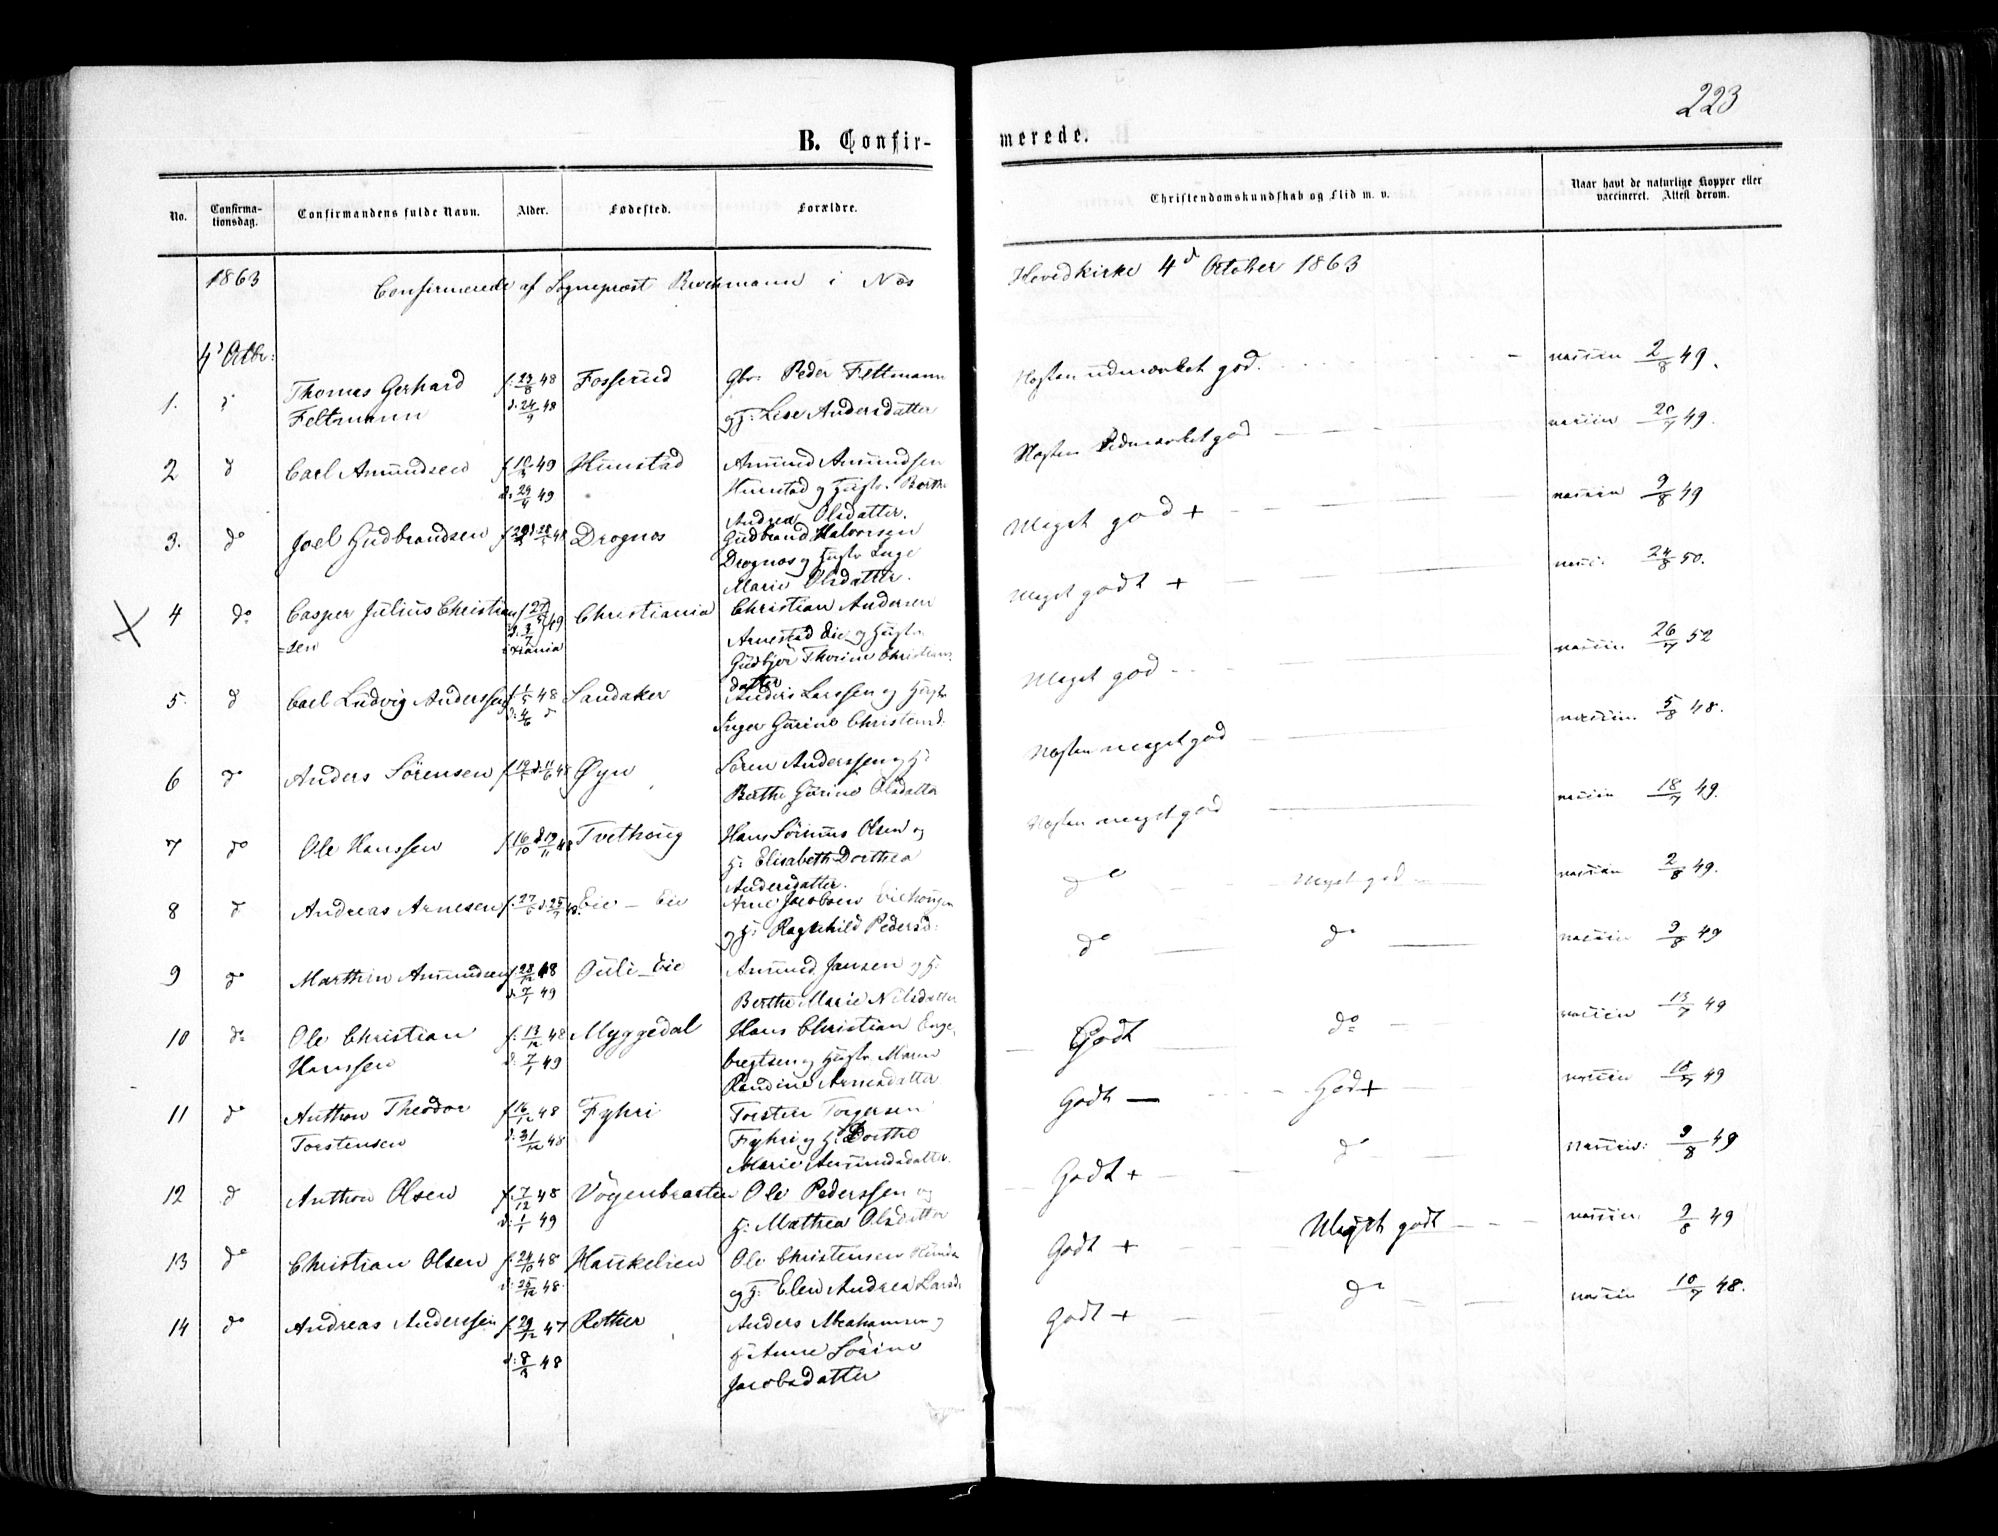 223
B. Confir-
merede.
No.
Confirma-
tionsdag.
Confirmandens fulde Navn.
Alder.
Fødested.
Forældre.
Christendomskundskab og Flid m. v.
Naar havt de naturlige Kopper eller
vaccineret. Attest derom.
1863
Confirmerede af Sognepræst Brochmann i Næs
Hovedkirke 4d October 1863
4d Octbr:
1.
Thomas Gerhard
Feltmann
f: 23/8 48
d: 24/9 48
Fosserud
Gbr: Peder Feltmann
og H: Lese Andersdatter
Næsten udmærket god.
vaccin 2/8 49.
2 d
Carl Amundsen
49
d: 29/4 49
Hunstad
Amund Amundsen
Hunstad og Hustr. Berthe
Andrea Olsdatter.
Næsten Udmærket god
vaccin 20/7 49.
3. do
Joel Gudbrandsen
Drognæs
Gudbrand Halvorsen
Drognæs og Hustr Inge
Marie Olsdatter.
Meget god +
vaccin 9/8 49
4 do
Casper Julius Christian
=sen
49
Xtiania
Christiania
Christian Andersen
Arnestad Eie og Hustr.
Gudbjør Thorine Christians
datter
Meget godt +
vacci. 24/8 50.
5. d
Carl Ludvig Anderssen
f: 1/5 48
d: 4/6 d
Sandaker
Anders Larssen og Hustr
Inger Gurine Christensd.
Meget god
vaccin. 26/7 52
6 do
Anders Sörensen
Øyn
Sören Anderssen og H:
Berthe Gurine Olsdatter
Næsten meget god
vaccin. 5/8 48.
7 do
Ole Hanssen
f 16/10 d 19/11 48
Tvethoug
Hans Sörinus Olsen og
H: Elisabeth Dorthea
Andersdatter.
Næsten meget god
vaccin 18/7 49.
8 d
Andreas Arnesen
Eie - Eie
Arne Jacobsen Eiehougen
og H: Ragnhild Pedersd:
do Meget god
vaccin 2/8 49.
9 do
Marthin Amundsen
f 23/12 48
d. 7/1 49
Ouli-Eie
Amund Jansen og H:
Berthe Marie Nilsdatter
do do
vaccin 9/8 49
10 do
Ole Christian
Hanssen
f: 13/12 48
d: 7/1 49
Myggedal
Hans Christian Enge-
bregtsen og Hustr. Maren
Randine Arnesdatter
Godt do
vaccin 13/7 49
11 do
Anthon Theodor
Torstensen
f 16/12 48
d: 31/12 48
Fyhri
Torsten Torgersen
Fyhri og H: Dorthe
Marie Amundsdatter.
Godt God+
vaccin 18/7 49
12 d
Anthon Olsen
f. 7/12 48
d: 1/1 49
Vögenbraaten
Ole Pederssen og
H: Mathea Olsdatter
Godt + do
vaccin: 9/8 49
13 do
Christian Olsen
f. 24/10 48
d: 25/12 48.
Haukelien
Ole Christensen
og H: Elen Andrea Larsd:
Godt + Meget godt
vaccin. 9/8 49
14 do
Andreas Anderssen
f. 29/12 47
48
Rother
Anders Abrahamsen og
H: Anne Sörine
Jacobsdatter
Godt + do
vaccin 10/7 48.